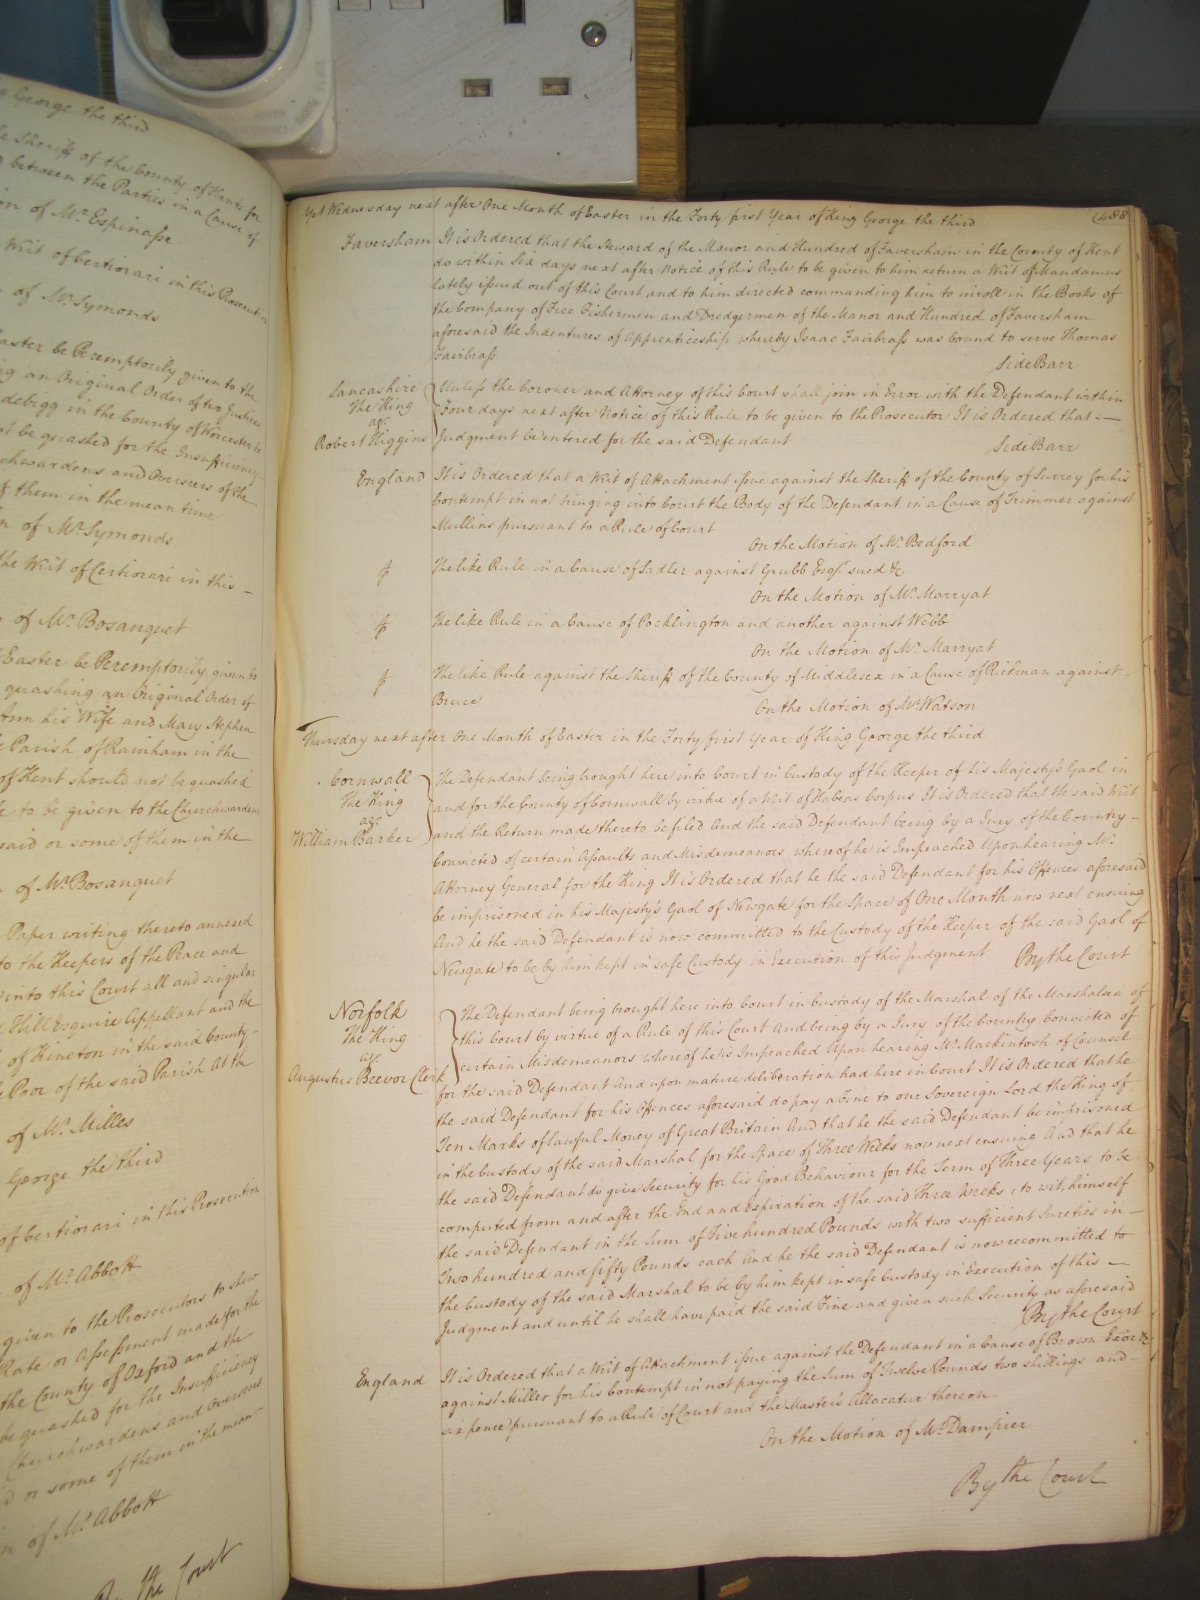 George the third
the Sheriff of the County of Hants for
between the Parties in a Cause of
on of Mr. Espinasse
Writ of Certiorari in this Prosecution
of Mr. Symonds
Easter be Peremptorily given to the
an Original Order of two Justices
in the County of Worcester
be quashed for the Insufficiency
Churchwardens and Overseers of the
of them in the mean time
of Mr. Symonds
the Writ of Certiorari in this
of Mr. Bosanquet
Easter be Peremptorily given to
quashing an Original Order of
Ann his Wife and Mary Stephen
Parish of Rainham in the
of Kent should not be quashed
to be given to the Churchwardens
said or some of them in the
of Mr. Bosanquet
Paper writing thereto annexed
to the Keepers of the Peace and
into this Court all and singular
Hill Esquire Appellant and the
of Kineton in the said County
Poor of the said Parish At the
of Mr. Milles
George the third
of Certiorari in this Prosecution
of Mr. Abbott
given to the Prosecutors to shew
Rate or Assessment made for the
the County of Oxford and the
be quashed for the Insufficiency
Churchwardens and Overseers
or some of them in the mean
of Mr. Abbott
By the Court
488
Yet Wednesday next after One Month of Easter in the Forty first Year of King George the third
Faversham It is Ordered that the Steward of the Manor and Hundred of Faversham in the County of Kent
do within Six days next after Notice of this Rule to be given to him return a Writ of Mandamus
lately issued out of this Court and to him directed commanding him to inroll in the Books of
the Company of Free Fishermen and Dredgermen of the Manor and Hundred of Faversham
aforesaid the Indentures of Apprenticeship whereby Isaac Fairbrass was bound to serve Thomas
Fairbrass
Side Barr
Lancashire
The King
agt.
Robert Higgins
Unless the Coroner and Attorney of this Court shall join in Error with the Defendant within
Four days next after Notice of this Rule to be given to the Prosecutor It is Ordered that
Judgment be entered for the said Defendant
Side Barr
England It is Ordered that a Writ of Attachment issue against the Sheriff of the County of Surrey for his
Contempt in not bringing into Court the Body of the Defendant in a Cause of Trimmer against
Mullins pursuant to a Rule of Court
On the Motion of Mr. Bedford
The like Rule in a Cause of Sadler against Grubb Esqr. sued &c.
On the Motion of Mr. Marryat
The like Rule in a Cause of Pocklington and another against Webb
On the Motion of Mr. Marryat
The like Rule against the Sheriff of the County of Middlesex in a Cause of Rickman against
Bruce
On the Motion of Mr. Watson
Thursday next after One Month of Easter in the Forty first Year of King George the third
Cornwall
The King
agt.
William Barker
The Defendant being brought here into Court in Custody of the Keeper of his Majesty's Gaol in
and for the County of Cornwall by virtue of a Writ of Habeas Corpus It is Ordered that the said Writ
and the Return made thereto be filed And the said Defendant being by a Jury of the Country
Convicted of certain Assaults and Misdemeanors whereof he is Impeached Upon hearing Mr.
Attorney General for the King It is Ordered that he the said Defendant for his Offences aforesaid
be imprisoned in his Majesty's Gaol of Newgate for the Space of One Month now next ensuing
And he the said Defendant is now committed to the Custody of the Keeper of the said Gaol of
Newgate to be by him kept in safe Custody in Execution of this Judgment By the Court
Norfolk
The King
agt.
Augustus Beevor Clerk
The Defendant being brought here into Court in Custody of the Marshal of the Marshalsea of
this Court by virtue of a Rule of this Court And being by a Jury of the Country Convicted of
certain Misdemeanors whereof he is Impeached Upon hearing Mr. Mackintosh of Counsel
for the said Defendant And upon mature deliberation had here in Court It is Ordered that he
the said Defendant for his Offences aforesaid do pay a Fine to our Sovereign Lord the King of
Ten Marks of lawful Money of Great Britain And that he the said Defendant be imprisoned
in the Custody of the said Marshal for the Space of Three Weeks now next ensuing And that he
the said Defendant do give Security for his Good Behaviour for the Term of Three Years to be
computed from and after the End and Expiration of the said Three Weeks, to wit, himself
the said Defendant in the Sum of Five hundred Pounds with two sufficient Sureties in
Two hundred and fifty Pounds each And he the said Defendant is now recommitted to
the Custody of the said Marshal to be by him kept in safe Custody in Execution of this
Judgment and until he shall have paid the said Fine and given such Security as aforesaid
By the Court
England It is Ordered that a Writ of Attachment issue against the Defendant in a Cause of Brown Exor. &c.
against Miller for his Contempt in not paying the Sum of Twelve Pounds two shillings and
six pence pursuant to a Rule of Court and the Master's Allocatur thereon
On the Motion of Mr. Dampier
By the Court